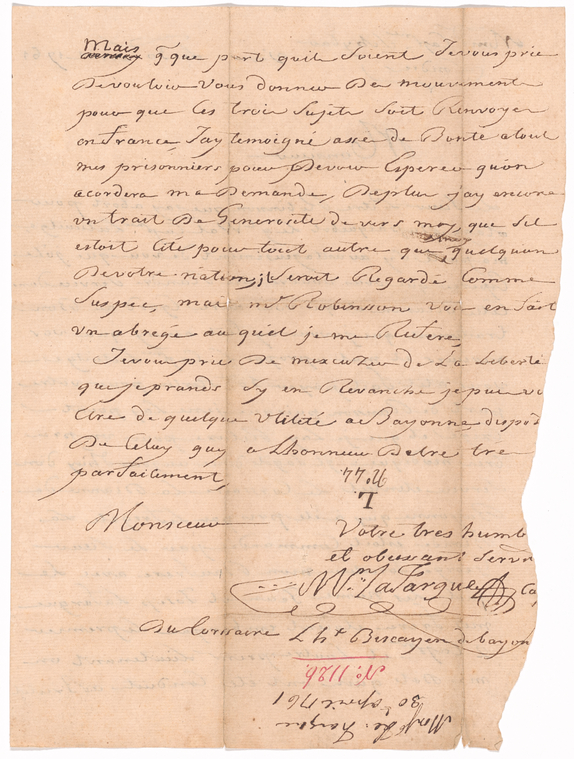 Mais
q que part quil Soient Je vous prie
De vouloir Vous donner De mouvement
pour que Ces trois Sujets Soit Renvoyer
en France, Jay temoigné assé de Bonté a tout
mes prisonniers pour Devoir Esperer quon
acordera ma Demande, Deplus jay encore
vn trait De Generosité de vers moy, que Sil
estoit Cité pour tout autre que quelquun
De votre nation; il Seroit Regardé Comme
Suspec, mais mr Robinson vous en fait
vn abregé au quel je me Refere,
Je vous prie De mexcuser de La Liberté
que je prands Sy en Revanche je puis vo
Etre de quelque Vtilité a Bayonne, dispos
De Celuy quy a Lhonneur Detre tre
parfaitement,
Monsieur
N: 44
L
Votre tres humb
et obeissant Servi
Mn Lafargue Ca
Du Corsaire Lht Biscayen de bayon
No: 1126
30 april 1761